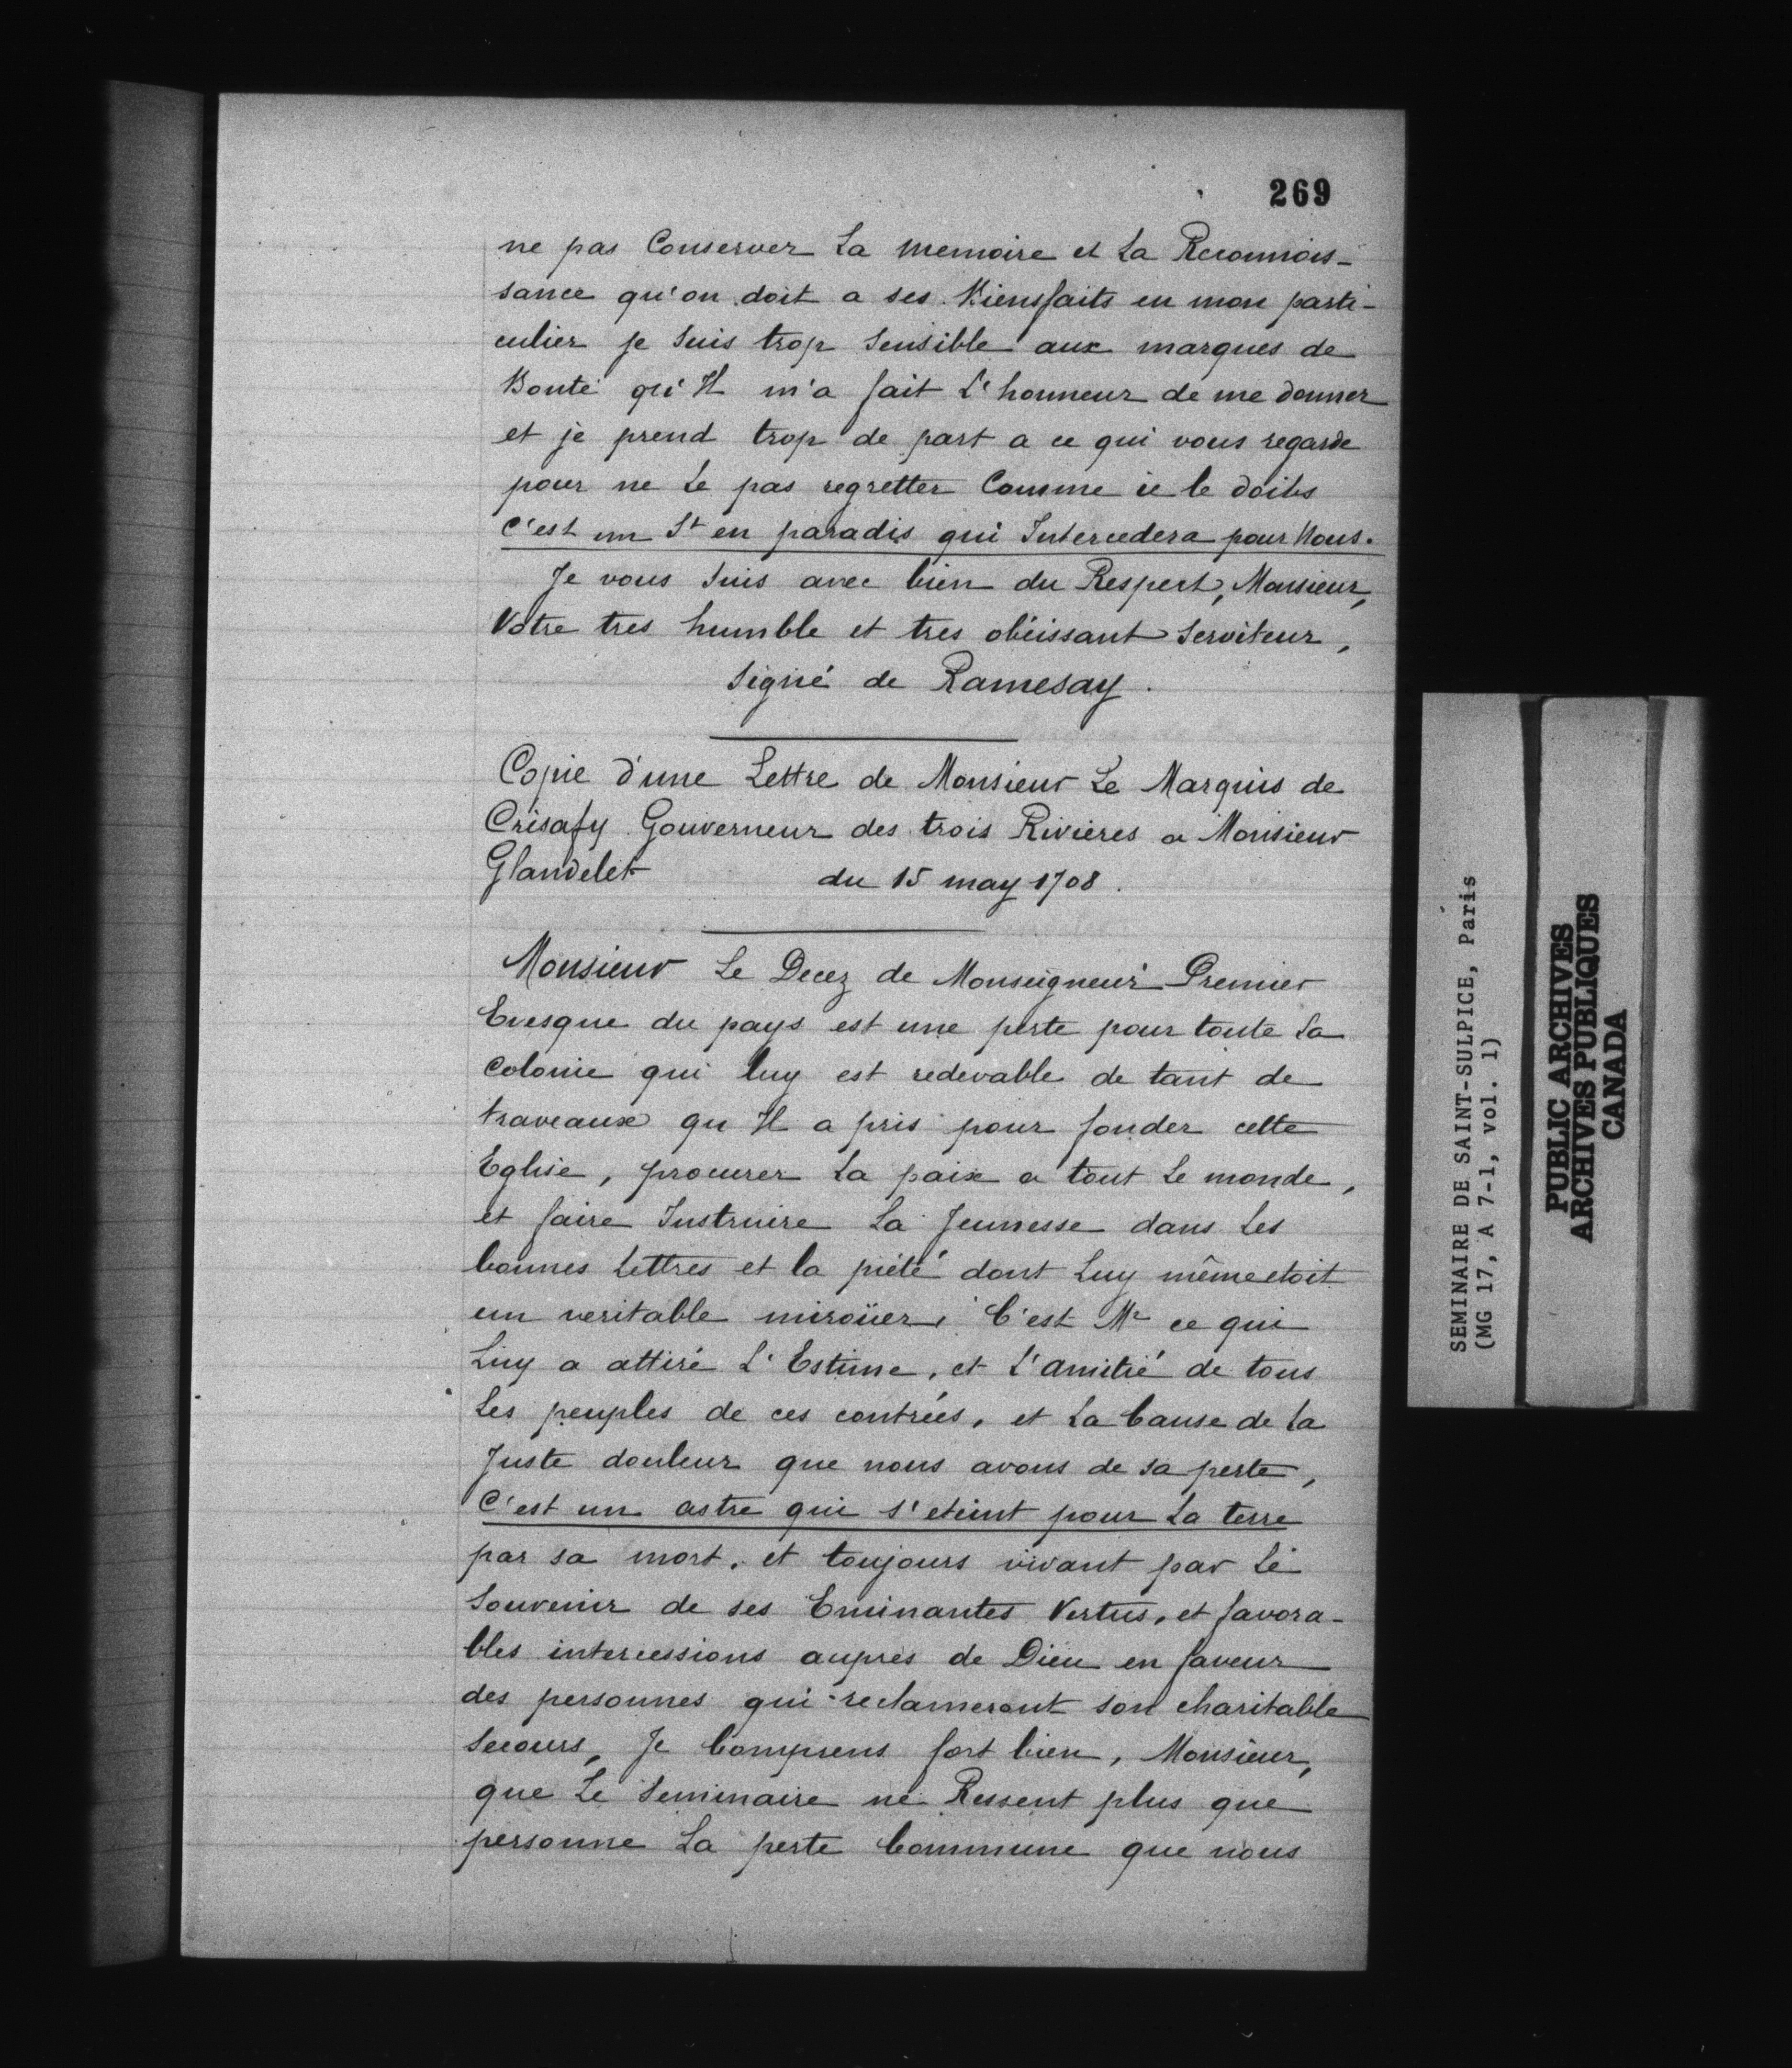 269
ne pas Conserver La memoire et La Reconnois-
sance qu'on doit a ses Biensfaits en mon parti-
culier je suis trop sensible aux marques de
Bonté qu'Il m'a fait L'honneur de me donner
et je prend trop de part a ce qui vous regarde
pour ne Le pas regretter Comme ie le doibs
C'est un St en paradis qui Intercedera pour Nous.
Je vous suis avec bien du Respect, Monsieur,
Votre tres humble et tres obéissant Serviteur,
Signé de Ramesay.
Copie d'une Lettre de Monsieur Le Marquis de
Crisafy Gouverneur des trois Rivieres a Monsieur
Glandelet du 15 may 1708.
Monsieur Le Decez de Monseigneur Premier
Evesque du pays est une perte pour toute La
Colonie qui luy est redevable de tant de
traveaux qu Il a pris pour fonder cette
Eglise, procurer La paix a tout Le monde,
et faire Instruire La Jeunesse dans Les
bonnes Lettres et la piété dont Luy même etoit
un veritable miroüer, C'est Mr ce qui
Luy a attiré L'Estime, et L'amitié de tous
Les peuples de ces contrées, et La Cause de La
Juste douleur que nous avons de sa perte,
C'est un astre qui s'eteint pour La terre
par sa mort, et toujours vivant par Le
Souvenir de ses Eminantes Vertus, et favora-
bles intercessions aupres de Dieu en faveur
des personnes qui reclameront son charitable
Secours, Je Comprens fort bien, Monsieur,
que Le Seminaire ne Ressent plus que
personne La perte Commune que nous
SEMINAIRE DE SAINT-SULPICE, Paris
(MG 17, A 7-1, vol. 1)
PUBLIC ARCHIVES
ARCHIVES PUBLIQUES
CANADA